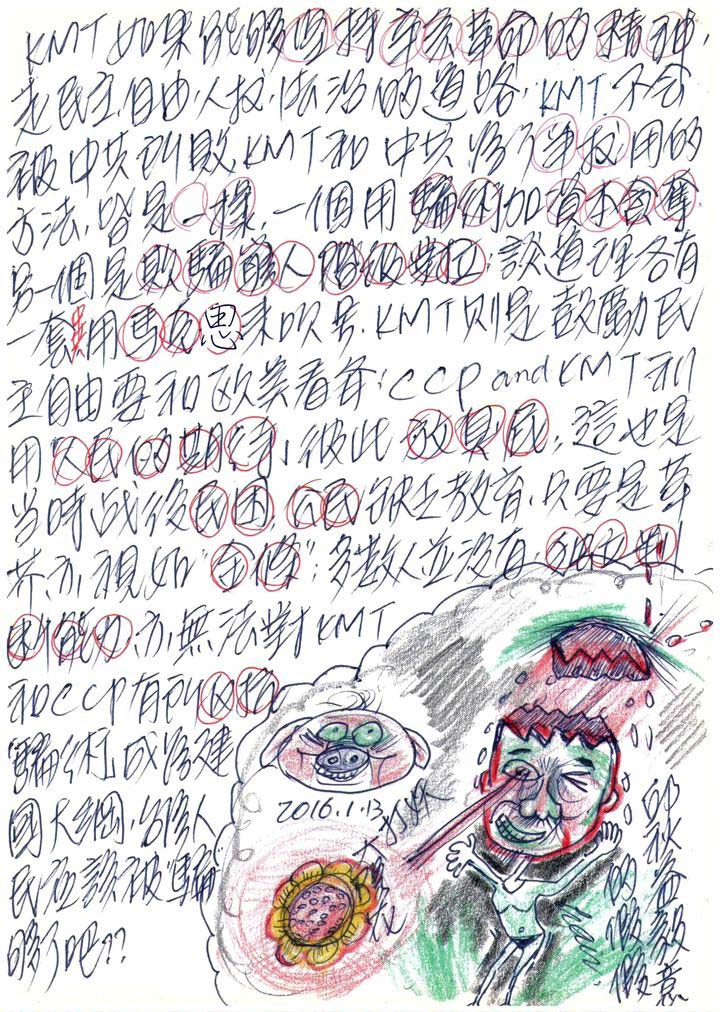 KMT如果能夠堅持辛亥革命的精神,
走民主、自由、人权、法治的道路, KMT不会
被中共列敗KMT和中共為了爭权用的
方法, 皆是一樣, 一個用騙術加資本官僚
另一個是欺騙窮人階級對立; 談道理各有
一套異用馬克思來吹号, KMT則是鼓勵民
主自由要和欧美看齐; CCP and KMT利
用人民的期待, 彼此欺負民, 這也是
当時战後民困, 人民缺乏教育, 只要是草
芥, 亦視如"金條"; 多数人並没有独立判
断能力, 亦無法對KMT
和CCP有所区格
"騙術"成為建
國大綱, 台湾人
民应該被"騙"
夠了吧??
2016.1.13
太陽花
打炊
邱秋益毅
的假假意